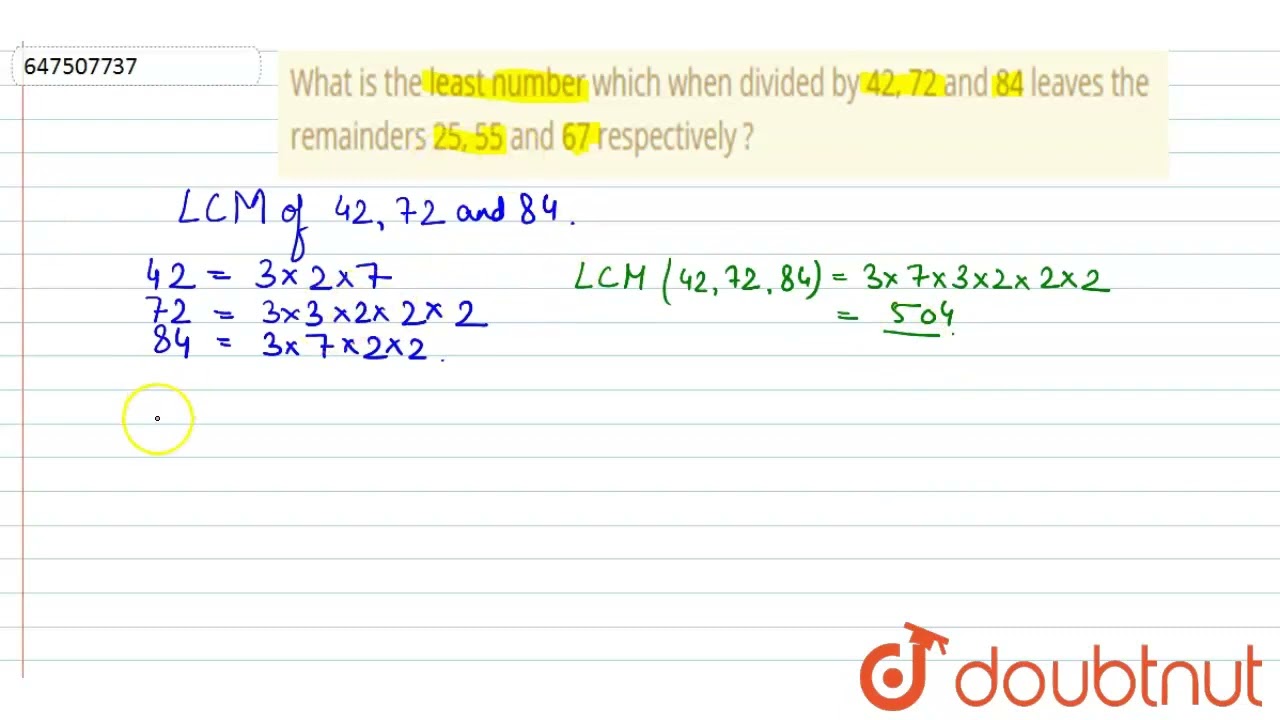 647507737
What is the least number which when divided by 42, 72 and 84 leaves the
remainders 25, 55 and 67 respectively ?
LCM of 42, 72 and 84.
42 = 3×2×7
72 = 3×3×2×2×2
84 = 3×7×2×2.
LCM (42, 72, 84) = 3×7×3×2×2×2
= 504.
doubtnut